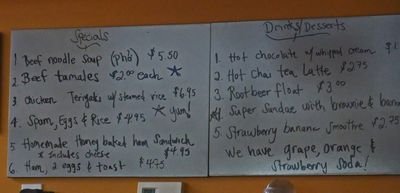 Specials
1. Beef noodle soup (phö) $5.50
2. Beef tamales $2.00 each ★
3. Chicken Teriyaki w/ steamed rice $6.95
4. Spam, Eggs & Rice $4.95 * yum!
5 Homemade Honey baked ham Sandwich
* includes cheese $4.95
6. Ham, 2 eggs & toast $4.95
Drinks/Desserts
1. Hot chocolate w/ whipped cream $1
2. Hot Chai tea Latte $2.75
3. Rootbeer float $3.00
Super Sundae with brownie & bana
5. Strawberry banana Smoothie $2.75
We have grape, orange &
Strawberry Soda!